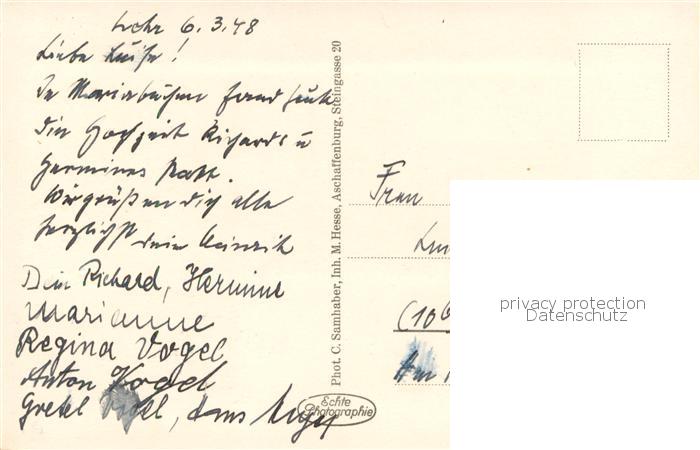 Lohr 6.3.48
Liebe Luise!
In Mariabuchen fand heute
die Hochzeit Richards u
Hermines statt.
Wir grüßen dich alle
herzlichst dein Heinrich
Dein Richard, Hermine
Marianne
Regina Vogel
Anton Vogel
Gretel Vogel, Hans
Phot. C. Samhaber, Inh. M. Hesse, Aschaffenburg, Steingasse 20
Echte
Photographie
Frau
(10
privacy protection
Datenschutz